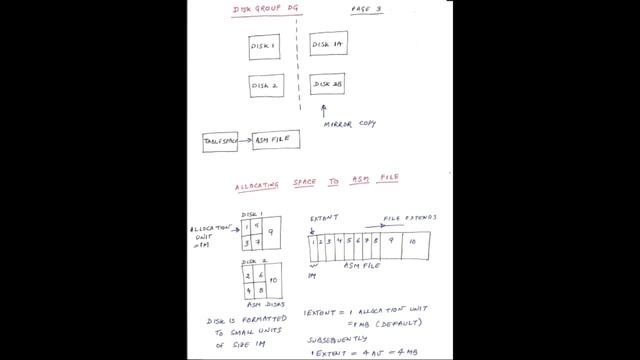 DISK GROUP DG
PAGE 3
DISK 1
DISK 1A
DISK 2
DISK 2B
MIRROR COPY
TABLESPACE
ASM FILE
ALLOCATING SPACE TO ASM FILE
DISK 1
ALLOCATION
UNIT
=1M
1 5
9
3 7
DISK 2
2 6
10
4 8
ASM DISKS
EXTENT
FILE EXTENDS
1 2 3 4 5 6 7 8 9 10
1M
ASM FILE
DISK IS FORMATTED
TO SMALL UNITS
OF SIZE 1M
1 EXTENT = 1 ALLOCATION UNIT
= 1 MB (DEFAULT)
SUBSEQUENTLY
1 EXTENT = 4 AU = 4 MB